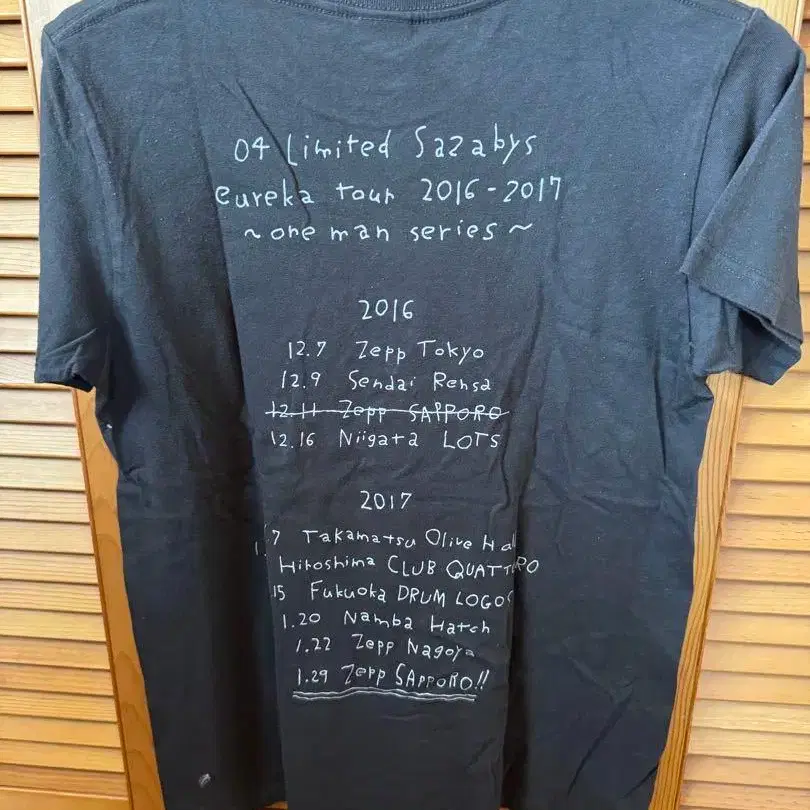 04 Limited Sazabys
eureka tour 2016-2017
~one man series~
2016
12.7 Zepp Tokyo
12.9 Sendai Rensa
12.11 Zepp SAPPORO
12.16 Niigata LOTS
2017
7 Takamatsu Olive
Hiroshima CLUB QUATTRO
15 Fukuoka DRUM LOGOS
1.20 Namba Hatch
1.22 Zepp Nagoya
1.29 Zepp SAPPORO!!